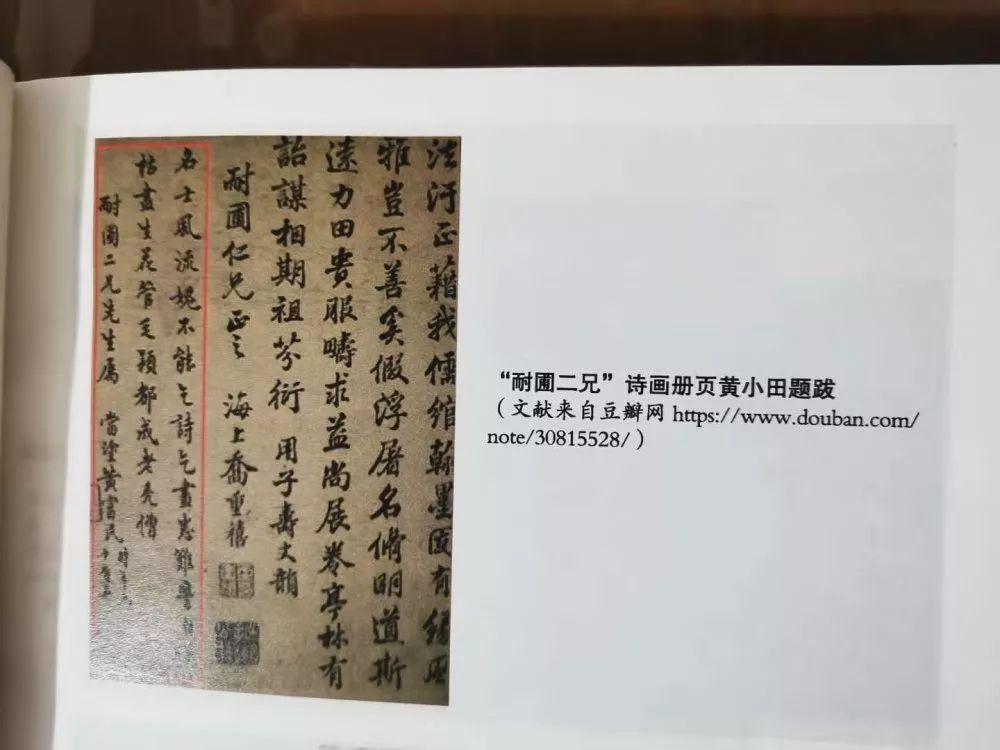 法汙正藉我儒綰翰墨有緣風
雅豈不善矣假浮屠名脩明道斯
遠力田貴服疇求益尚展卷亭林有
詒謀相期祖芬衍 用子壽丈韻
耐圃仁兄正之 海上喬重禧
名士風流媿不能乞詩乞畫難
枯盡生花管毛穎都成老禿僧
耐圃二兄先生屬 當塗黃富民 時年六十
“耐圃二兄”诗画册页黄小田题跋
（文献来自豆瓣网 https://www.douban.com/
note/30815528/）